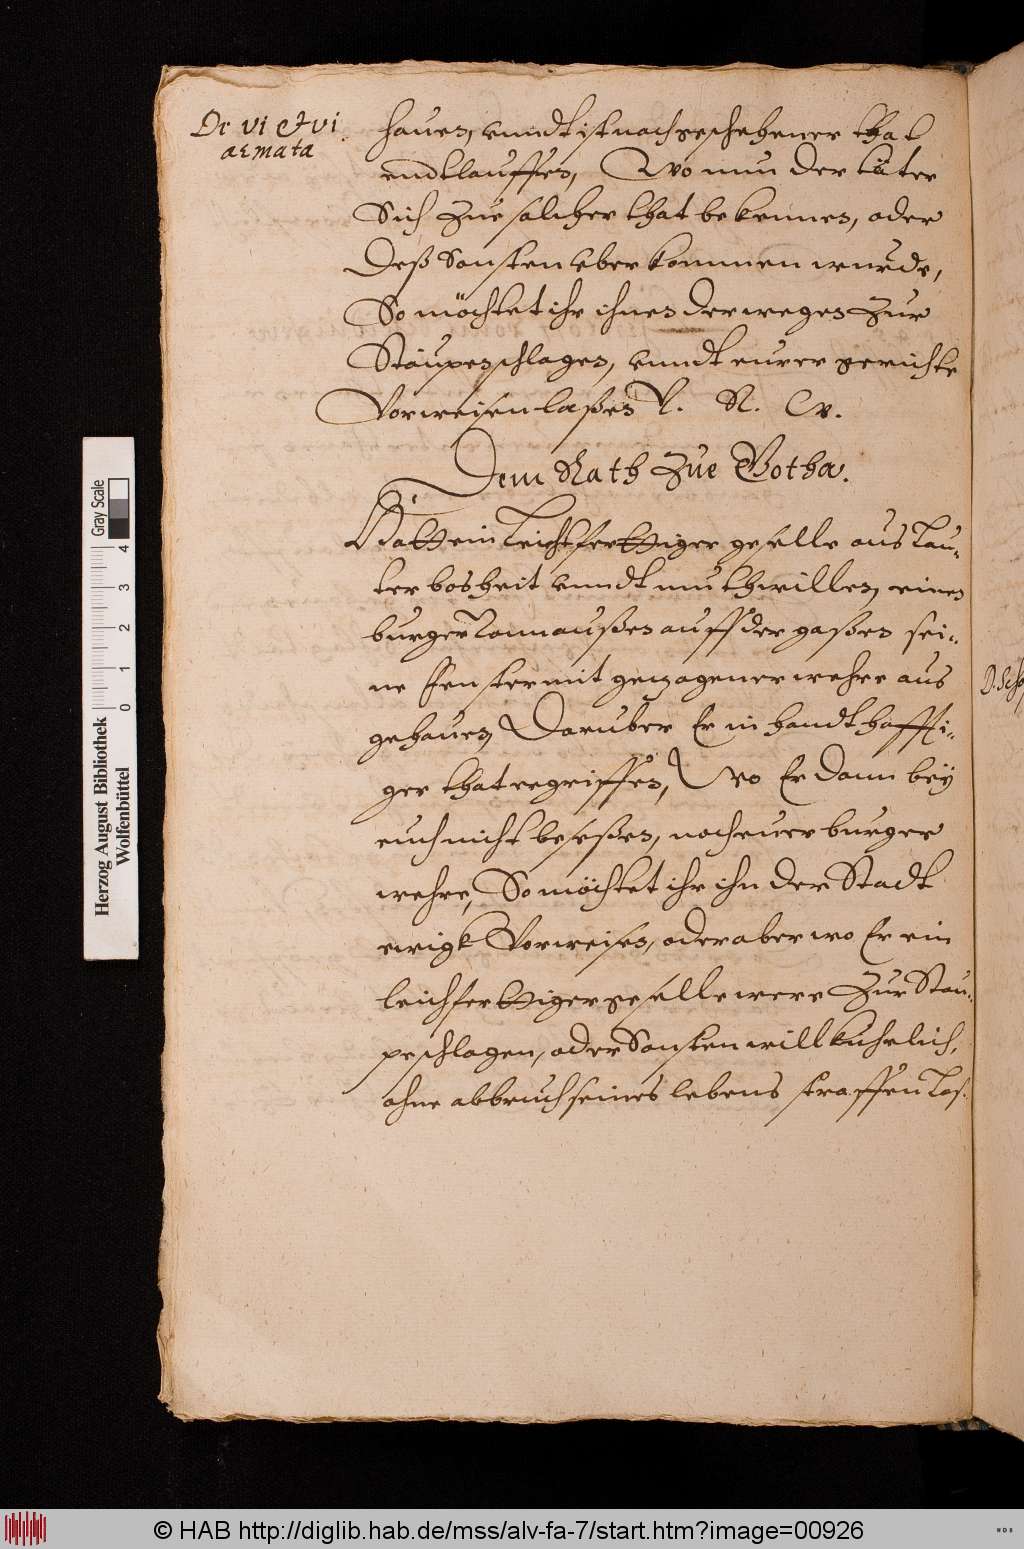 De vi et vi
armata
hauen, vnndt ist nach geschehener that
endtlauffen, Wo nun der täter
Sich zue solcher that bekennen, oder
Deß Sonsten vberkommen wurde,
So möchtet ihr ihnen derwegen zur
Stäupen schlagen, vnndt eurer gerichte
Vorweisen laßen V. R. W.
Dem Rath zue Gotha.
Hatt ein leichtferttiger geselle aus lau-
ter bosheit vnndt muthwillen, einen
burger von außen auff der gaßen sei-
ne Fenster mit gezogener wehre aus
gehauen, Daruber Er in handthaffti-
ger that ergriffen, Wo Er dann bey
euch nicht beseßen, noch euer burger
wehre, So möchtet ihr ihn der Stadt
ewigk Vorweisen, oder aber wo Er ein
leichferttiger geselle were zur Stau-
pe schlagen, oder Sonsten willkuhrlich,
ohne abbruch seines lebens straffen las-
Herzog August Bibliothek
Wolfenbüttel
Gray Scale
0 1 2 3 4
© HAB http://diglib.hab.de/mss/alv-fa-7/start.htm?image=00926